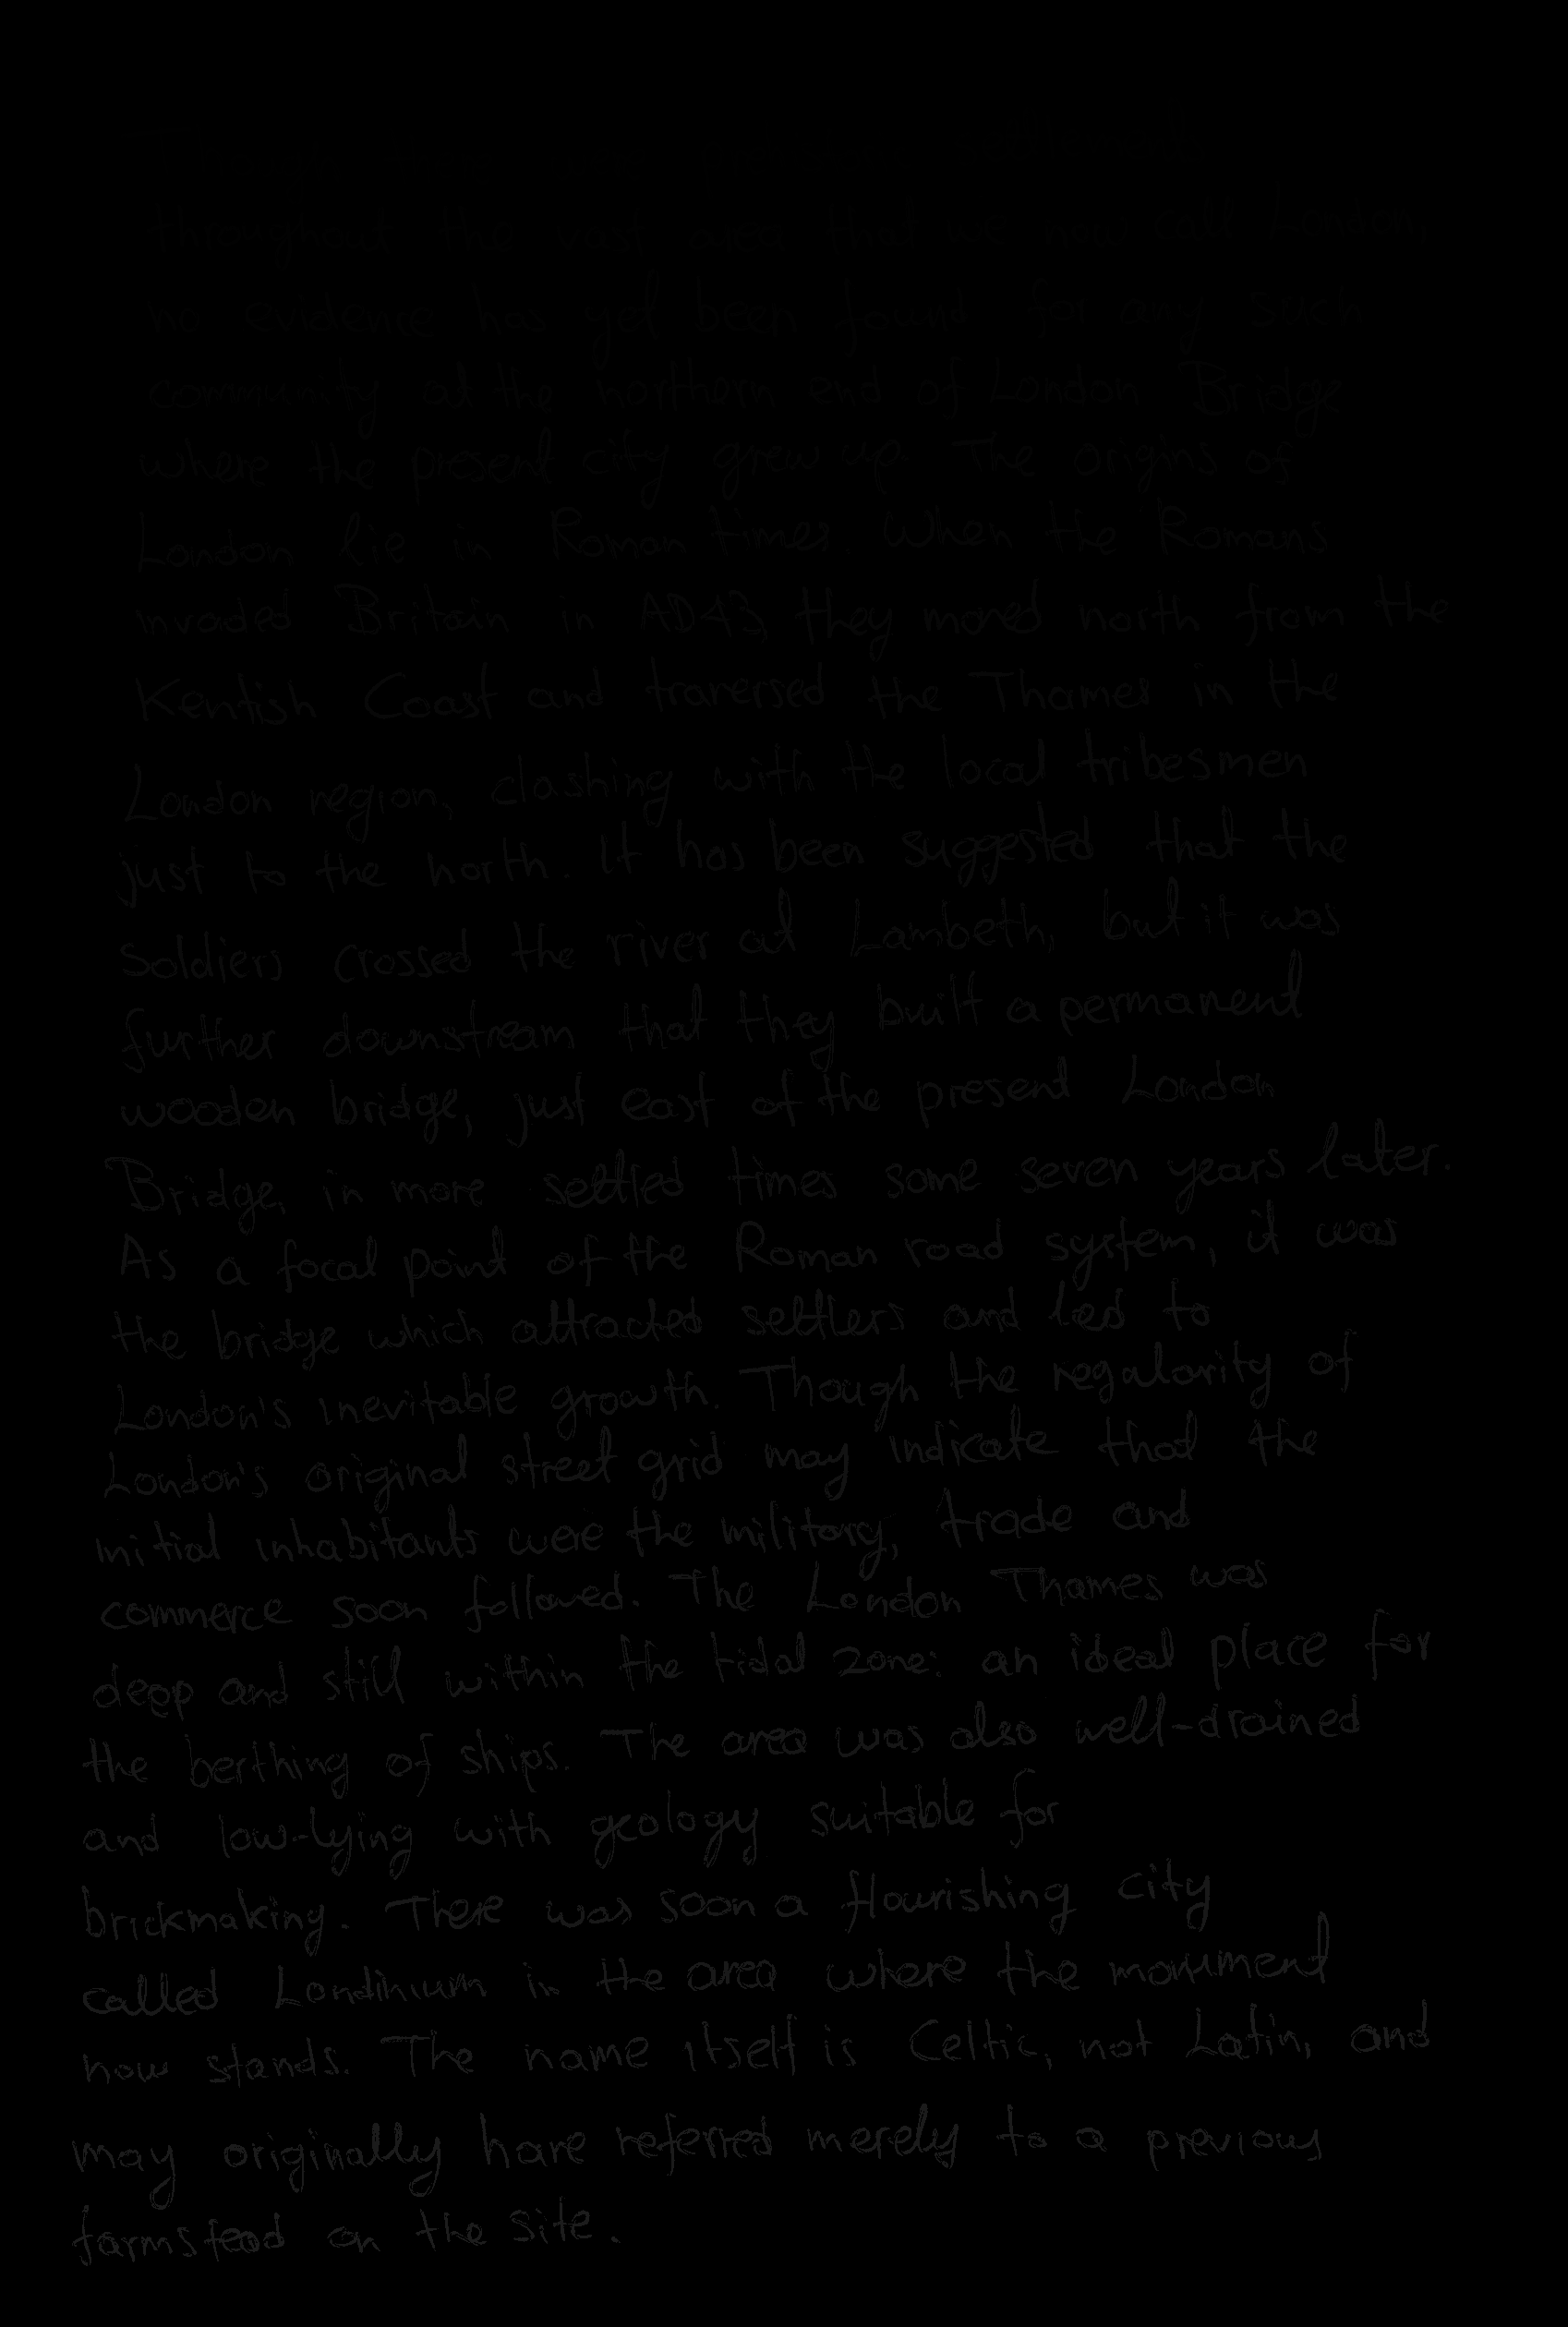 throughout the vast area that we now call London,
no evidence has yet been found for any such
community at the northern end of London Bridge
where the present city grew up. The origins of
London lie in Roman times. When the Romans
invaded Britain in AD43, they moved north from the
Kentish Coast and traversed the Thames in the
London region, clashing with the local tribesmen
just to the north. It has been suggested that the
soldiers crossed the river at Lambeth, but it was
further downstream that they built a permanent
wooden bridge, just east of the present London
Bridge, in more settled times some seven years later.
As a focal point of the Roman road system, it was
the bridge which attracted settlers and led to
London's inevitable growth. Though the regularity of
London's original street grid may indicate that the
initial inhabitants were the military, trade and
commerce soon followed. The London Thames was
deep and still within the tidal zone: an ideal place for
the berthing of ships. The area was also well-drained
and low-lying with geology suitable for
brickmaking. There was soon a flourishing city
called Londinium in the area where the monument
now stands. The name itself is Celtic, not Latin, and
may originally have referred merely to a previous
farmstead on the site.